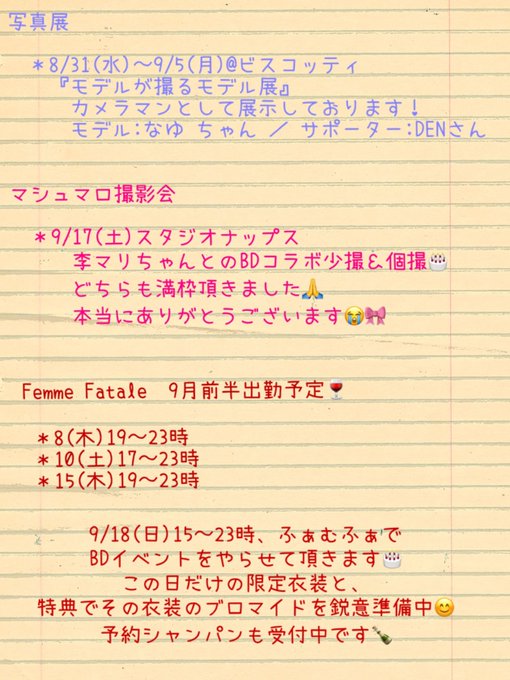 写真展
＊8/31(水)〜9/5(月)@ビスコッティ
『モデルが撮るモデル展』
カメラマンとして展示しております！
モデル:なゆ ちゃん ／ サポーター:DENさん
マシュマロ撮影会
＊9/17(土)スタジオナップス
李マリちゃんとのBDコラボ少撮＆個撮🎂
どちらも満枠頂きました🙏
本当にありがとうございます😭🎀
Femme Fatale 9月前半出勤予定🍷
＊8(木)19〜23時
＊10(土)17〜23時
＊15(木)19〜23時
9/18(日)15〜23時、ふぁむふぁで
BDイベントをやらせて頂きます🎂
この日だけの限定衣装と、
特典でその衣装のブロマイドを鋭意準備中😊
予約シャンパンも受付中です🍾